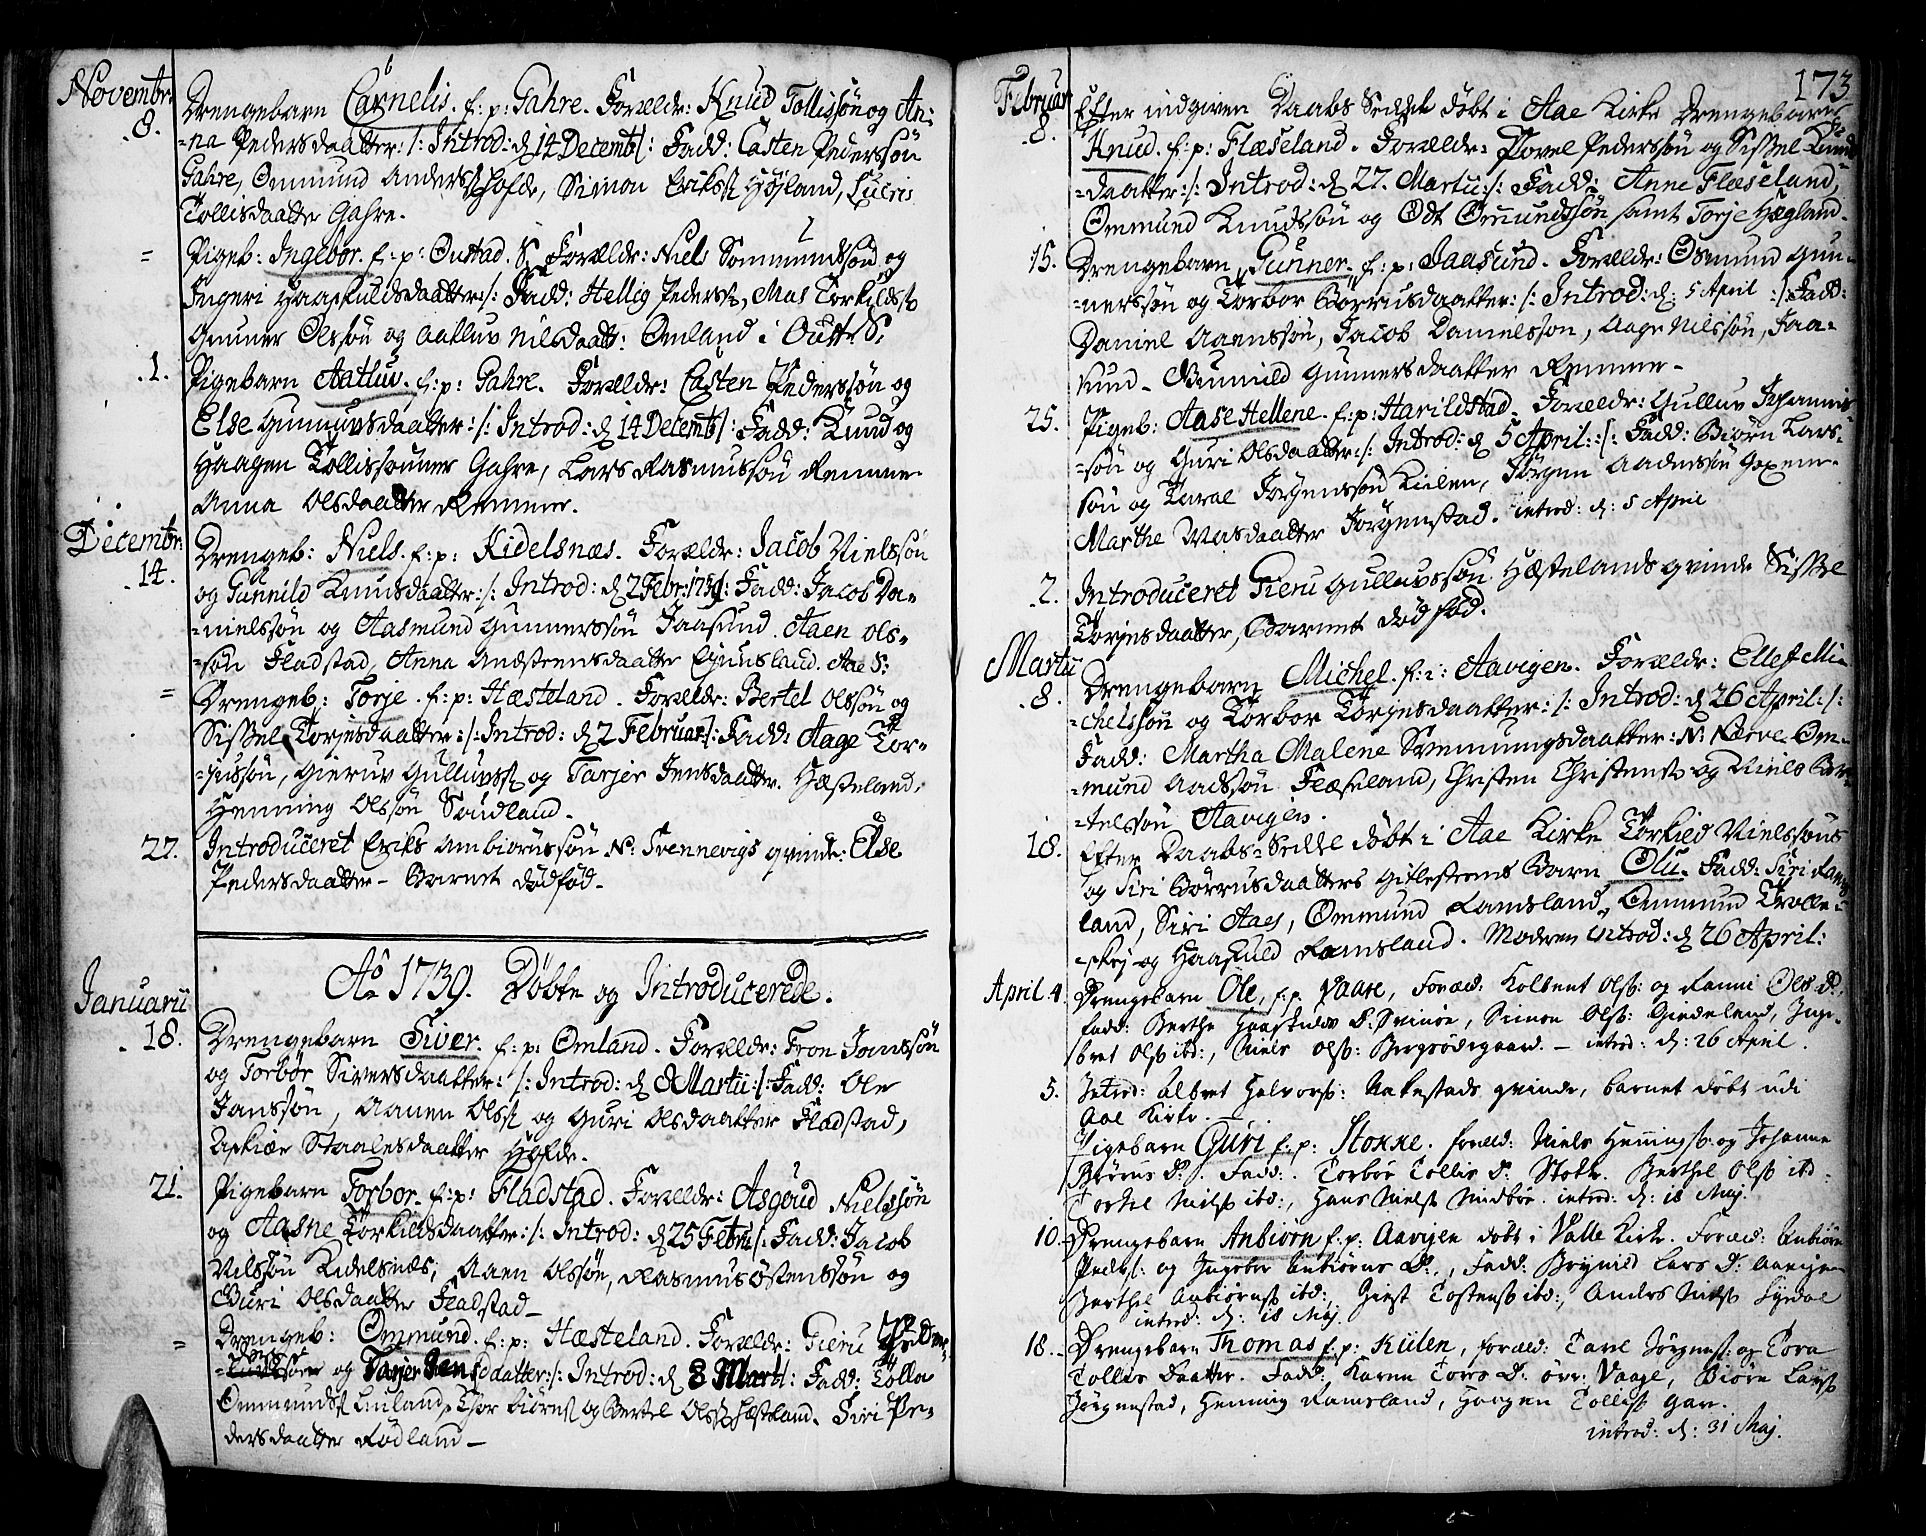 Novembr:
8. Drengebarn Carnelis. f: p: Gahre. Forældr: Knud Tollissøn og An-
=na Pedersdaatter: /: Introd: d 14 Decemb /: Fadd: Casten Pederssøn
Gahre, Ommund Anderss Hofde, Simon Erikss Høyland,
Tollisdaatter Gahre.
= Pigeb: Ingebor. f: p: Outtad. S. Forældr: Niels Sommundssøn og
Ingeri Haaskuldsdaatter: /: Fadd: Hellig Pederss, Mas Torkildss
Gunner Olssøn og Aatluv Nilsdaatt: Omland i Outt: S:
.1. Pigebarn Aatluv. f: p: Gahre. Forældr: Casten Pederssøn og
Else Gunnuvsdaatter: /: Introd: d 14 Decemb /: Fadd: Knud og
Haagen Tollissønner Gahre, Lars Rasmussøn Remmer
Anna Olsdaatter Remmer.
Decembr:
14. Drengeb: Niels. f: p: Kidelsnæs. Forældr: Jacob Nielssøn
og Gunnild Knudsdaatter: /: Introd: d 2 Febr: 1739 /: Fadd: Jacob Da-
=nielssøn og Aasmund Gunnerssøn Jaasund. Aaen Ols-
=søn Fladstad, Anna Andstensdaatter Eyunsland. Aae S:
= Drengeb: Torje. f: p: Hæsteland. Forældr: Bertel Olssøn og
Sissel Torjesdaatter: /: Introd: d 2 Februar /: Fadd: Aage Tor-
=jussøn, Gieruv Gulluvss og Tarjer Jensdaatter. Hæsteland,
Henning Olssøn Sundland.
27. Introduceret Eriks Ambiørussøn N: Svennevigs qvinde: Else
Pedersdaatter - Barnet dødfød.
Ao 1739. Döbte og Introducerede.
Januarii
18. Drengebarn Siver. f: p: Omland. Forældr: Tron Janssøn
og Torbør Siversdaatter: /: Introd: d 8 Martii: /: Fadd: Ole
Janssøn, Aanen Olss og Guri Olsdaatter Fladstad,
Askier Staalesdaatter Hofde.
21. Pigebarn Torbor. f: p: Fladstad. Forældr: Asgoud Nielssøn
og Aasne Torkildsdaatter: /: Introd: d 25 Febru /: Fadd: Jacob
Nilssøn Kidelsnæs, Aaen Olssøn, Rasmus Østenssøn og
Guri Olsdaatter Fladstad -
= Drengeb: Ommund. f: p: Hæsteland. Forældr: Gieru
og Tarjer Jensdaatter: /: Introd: d 8 Marti: Fadd: Tolla
Ommundss Lunland, Thor biørns og Bertel Olss Hæsteland. Siri Pe-
dersdaatter Rødland -
173
Februar
8. Efter indgiven Daabs Seddel døbt i Aae Kirke Drengebarn
Knud. f: p: Flæseland. Forældr: Povel Pederssøn og Sissel Knuds
=daatter: /: Introd: d 27. Martii: /: Fadd: Anne Flæseland,
Ommund Knudssøn og Odt Omundssøn samt Torje Hægland.
15. Drengebarn Gunner. f: p: Jaasund. Forældr: Osmund Gun-
=nerssøn og Torbor Børrusdaatter: /: Introd: d: 5 April: /: Fadd:
Daniel Aarenssøn, Jacob Danielssøn, Aage Nilssøn, Jaa-
sund - Gunnild Gunnersdaatter Remmer -
25. Pigeb: Aase Hellene. f: p: Harildstad. Forældr: Gulluv Johannis
=søn og Guri Olsdaatter: /: Introd: d 5 April: /: Fadd: Biørn Lars-
søn og Taral Jorgenssøn Kielen, Jørgen Aadnessøn
Marthe Masdaatter Jorgenstad. introd: d: 5 April
.2. Introduceret Gieru Gulluvssøn Hæstelands qvinde Sissel
Torjesdaatter, Barnet død fød.
Martii
8. Drengebarn Michel. f: p: Aavigen. Forældr: Ellef Mi-
=chelssøn og Torbor Torjesdaatter: /: Introd: d 26 April: /:
Fadd: Martha Malene Svennungsdaatter: N: Narve Om-
=mund Aadssøn Flæseland, Christen Christens og Niels Ber-
=telssøn Aavigen.
18. Efter Daabs-Seddel döbt i Aae Kirke Torkied Nielssøns
og Siri Børrusdaatters Gitlestems Barn Olu. Fadd: Siri Rams
land, Siri Aaes, Ommund Ramsland, Ommund Trolle-
=skej og Haaskuld Ramsland. Moderen Introd: d 26 April:
April 4. Drengebarn Ole, f: p: Vaare, Foræld: Kolbent Olss: og Ranni Ols D.
fadd: Berthe Haaskilds D. Svinøe, Simon Olss: Gindeland, Inge-
bret Olss ibd:, Niels Olss: Bergsødegaard. - introd: d: 26 April.
5. Introd: Albret Halvorss: Aakestads qvinde, barnet døbt udi
Aae Kirke.
Pigebarn Guri f: p: Stokke. foræld: Niels Hennings: og Johanne
Børus D:. Fadd:. Torbor Tollis D. Stokk. Berthel Olss ibd.
Torkel Nielss ibd:, Hans Nielss Midbøe. introd: d: 18 Maj.
10. Drengebarn Anbiørn f: p: Aavigen døbt i Valle Kirk. Foræld: Anbiørn
Peders: og Ingebor Anbiørns D., Fadd: Brynild Lars D: Aavigen
Berthel Anbiørnss ibd:, Giest Tostens ibd:, Anders Nielss Lydal
introd: d: 18 Maj.
18. Drengebarn Thomas f: p: Kiilen, foræld: Tarel Jørgens: og Tora
Tollis Daatter. Fadd: Karen Tors D. øvr: Vaage, Biørn Larss
Jørgenstad, Henning Ramsland, Haagen Tolliss Gar.
introd: d: 31 Maj.